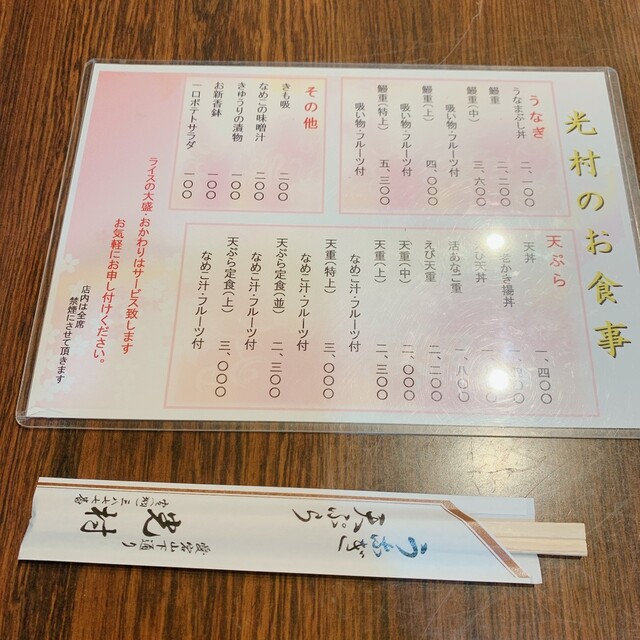 光村のお食事
うなぎ
うなまぶし丼 二、一〇〇
鰻重 二、二〇〇
鰻重(中) 三、六〇〇
吸い物・フルーツ付
鰻重(上) 四、〇〇〇
吸い物・フルーツ付
鰻重(特上) 五、三〇〇
吸い物・フルーツ付
その他
きも吸 二〇〇
なめこの味噌汁 二〇〇
きゅうりの漬物 一〇〇
お新香鉢 一〇〇
一口ポテトサラダ 一〇〇
天ぷら
天丼 一、四〇〇
かき揚丼
天丼
活あなご重 一、八〇〇
えび天重 二、二〇〇
天重(中) 二、〇〇〇
天重(上) 二、三〇〇
なめこ汁・フルーツ付
天重(特上) 三、〇〇〇
なめこ汁・フルーツ付
天ぷら定食(並) 二、三〇〇
なめこ汁・フルーツ付
天ぷら定食(上) 三、〇〇〇
なめこ汁・フルーツ付
ライスの大盛・おかわりはサービス致します
お気軽にお申し付けください。
店内は全席
禁煙にさせて頂きます
うなぎ
天ぷら
愛宕山下通り
光村